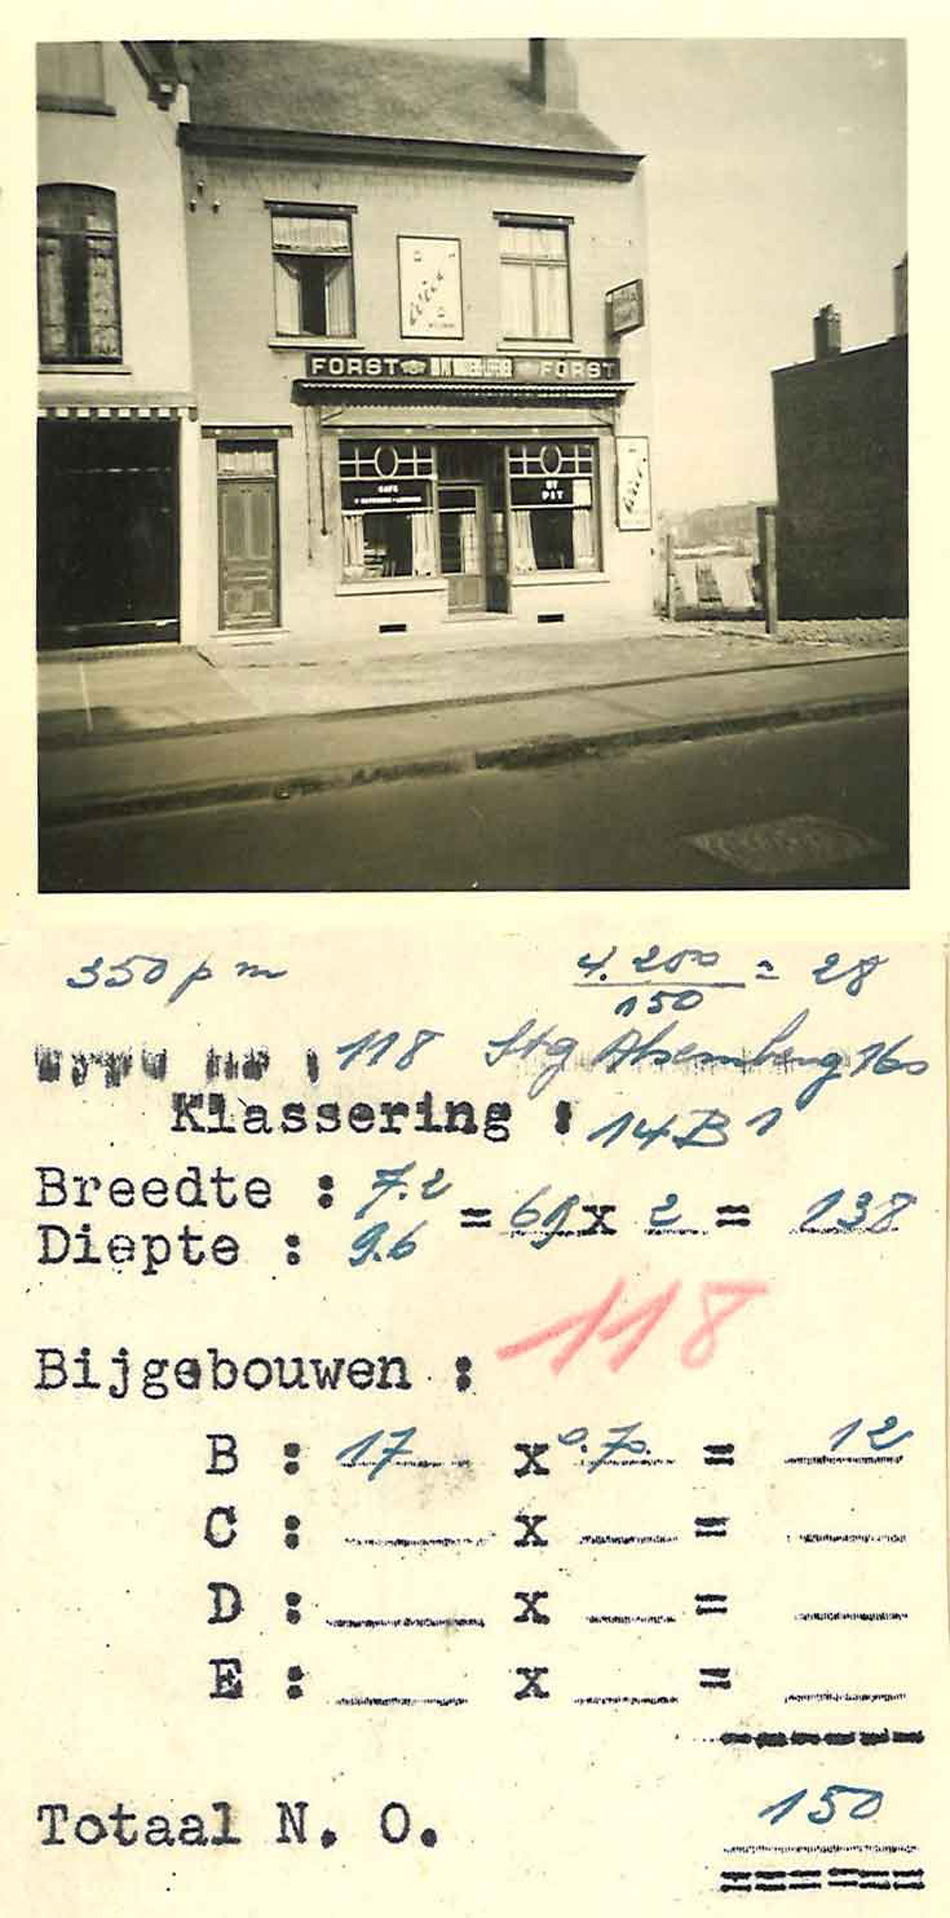 Wiels
FORST FORST
CAFE
BY
PIT
Wiels
350 p m
4.200 / 150 = 28
Type nr : 118 Stg Alsemberg 160
Klassering : 14 B 1
Breedte : 7.2
Diepte : 9.6
= 69 x 2 = 138
118
Bijgebouwen :
B : 17 x 0.70 = 12
C : x =
D : x =
E : x =
Totaal N. O. 150